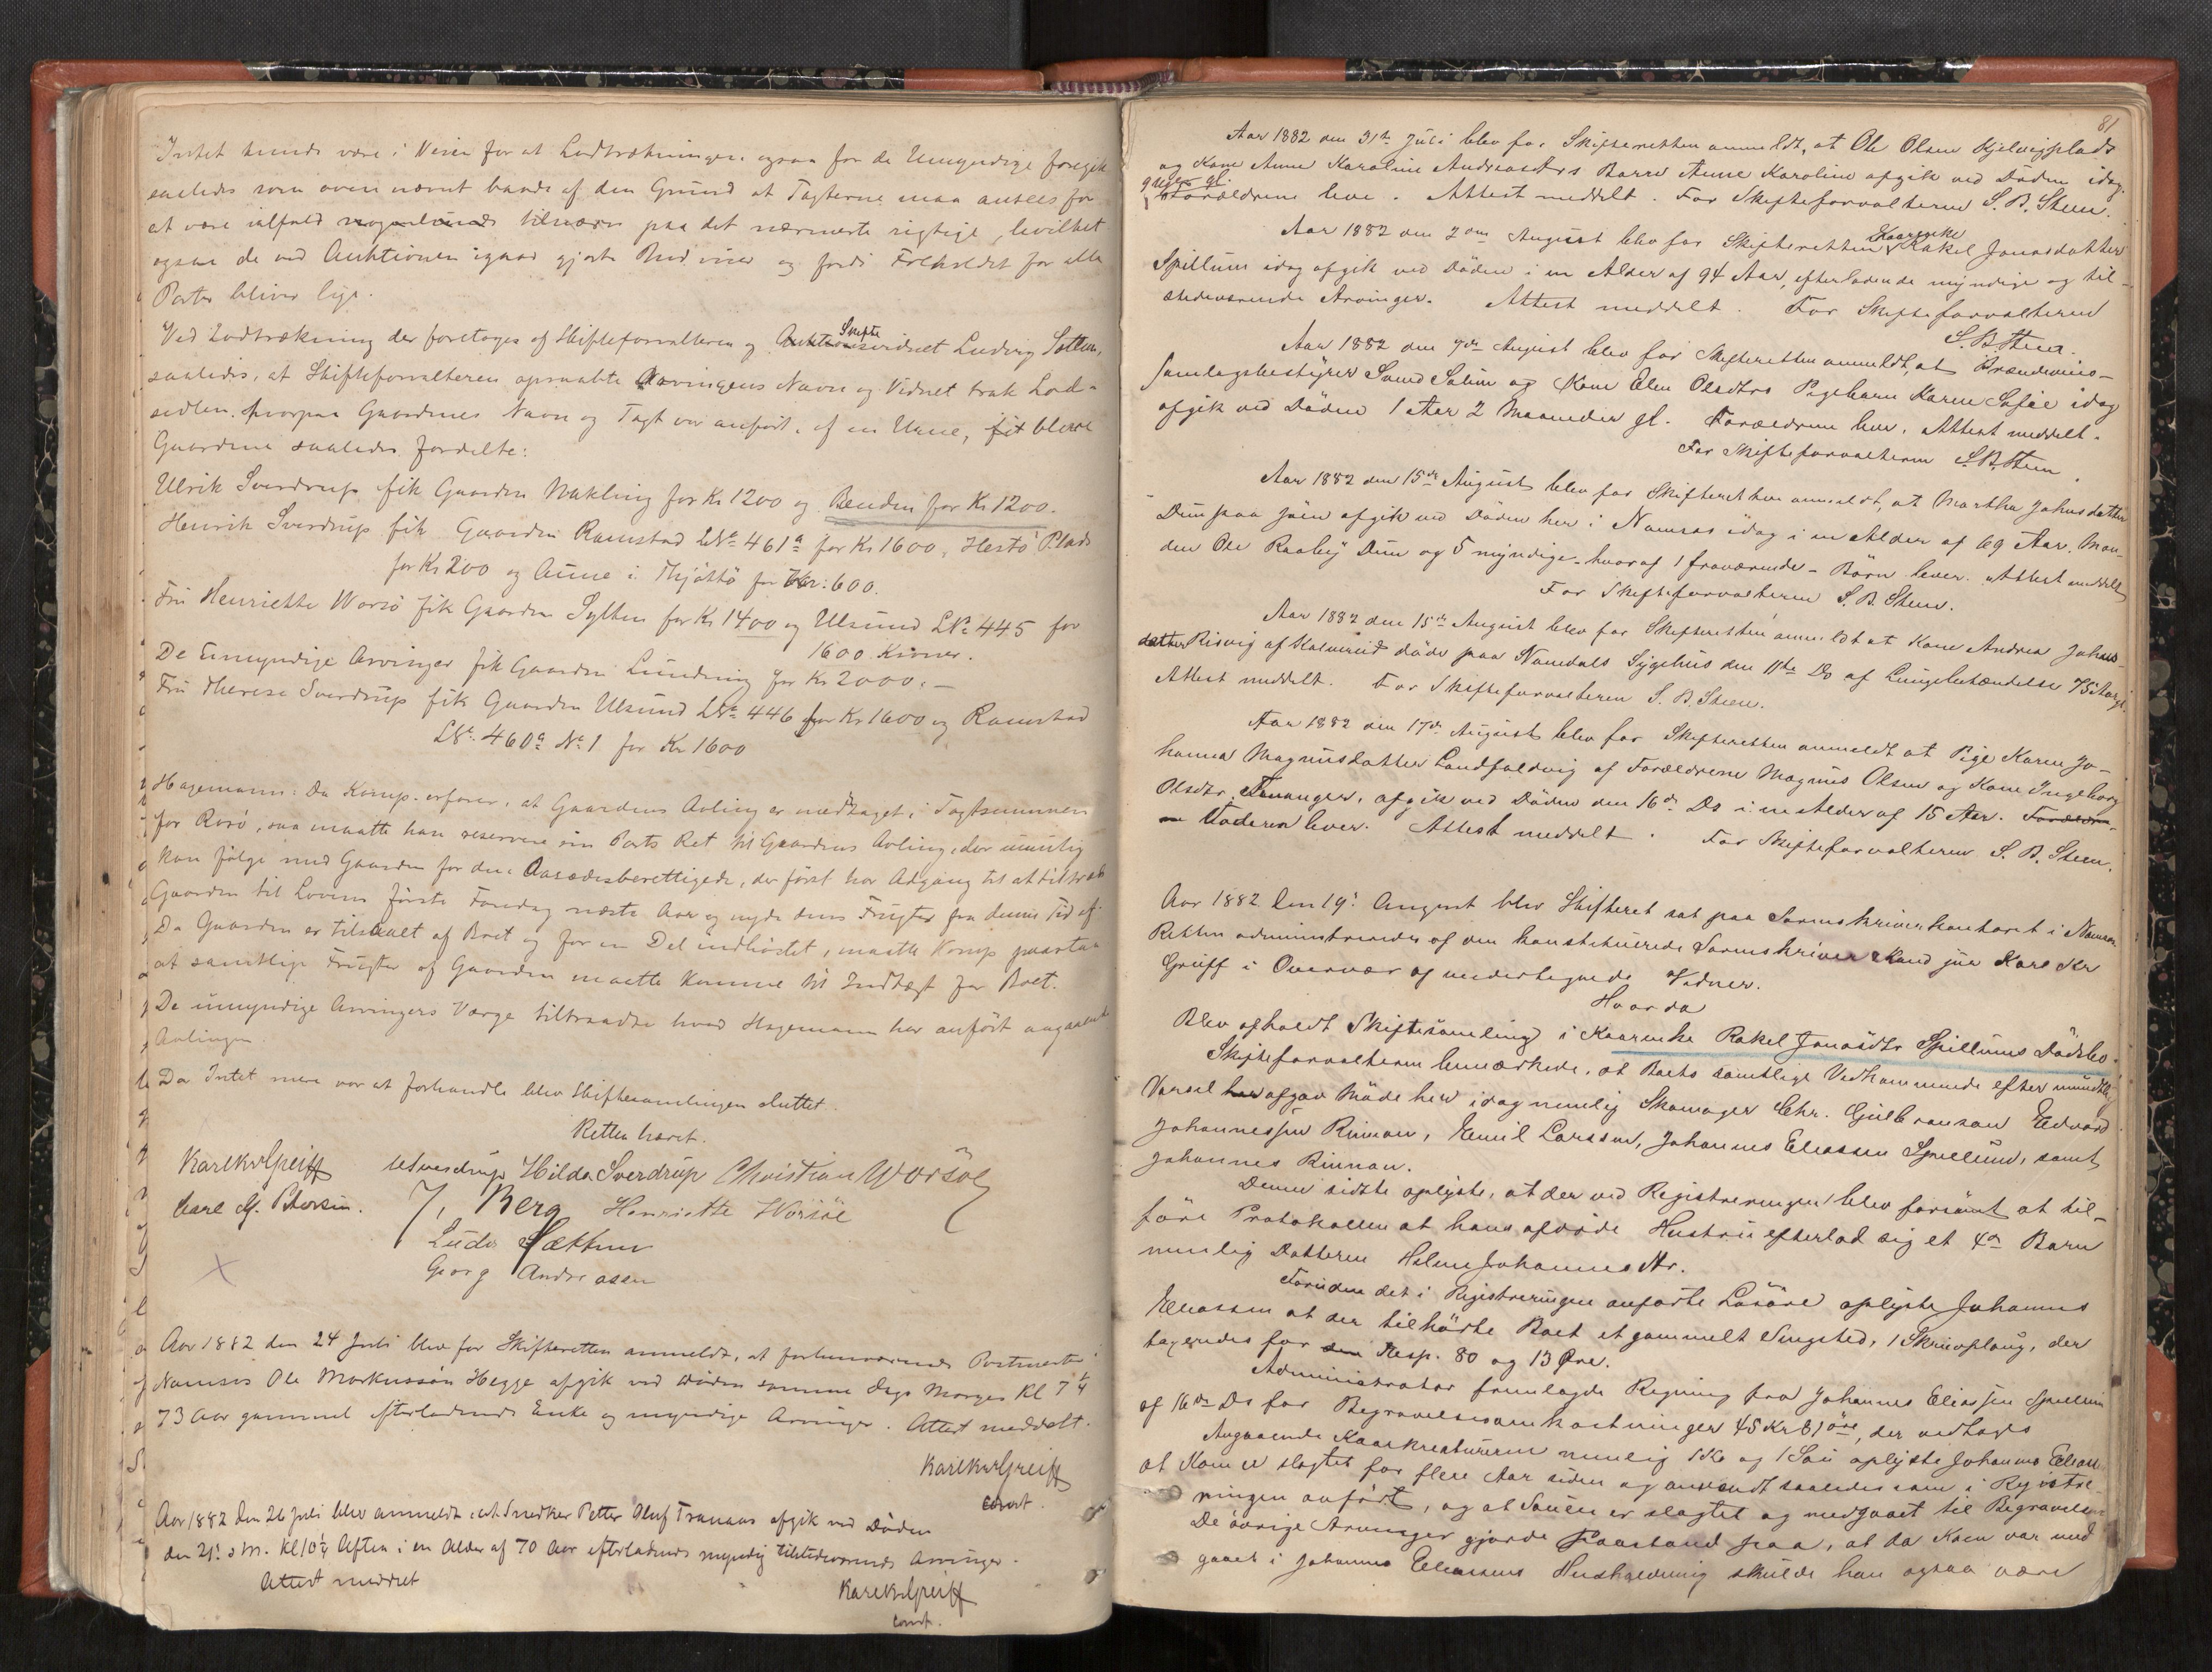 Intet kunde være i Veien for at Lodtrækningen ogsaa for de Umyndige foregik
saaledes som oven nævnt baade af den Grund at Taxterne maa ansees for
at være ialfald nogenlunde tilnærm paa det nærmeste rigtige, hvilket
ogsaa de ved Auktionen igaar gjorte Bud viser og fordi Forholdet for alle
Parter bliver lige.
Ved Lodtrækning der foretages af Skifteforvalteren og Skifte Auktionsvidnet Ludvig Sættem,
saaledes, at Skifteforvalteren opraabte Arvingens Navn og Vidnet trak Lod-
sedlen, hvorpaa Gaardenes Navn og Taxt var anført, af en Urne, fik bleve
Gaardene saaledes fordelte:
Ulrik Sverdrup fik Gaarden Vakling for Kr 1200 og Benden for Kr 1200.
Henrik Sverdrup fik Gaarden Ramstad LNo 461a for Kr 1600, Hestø Plads
for Kr 200 og Aune i Thjøttø for Kr: 600.
Fru Henriette Worsö fik Gaarden Sylten for Kr 1400 og Ulsund LNo 445 for
1600 Kroner.
De Umyndige Arvinger fik Gaarden Lundring for Kr 2000.-
Fru Therese Sverdrup fik Gaarden Ulsund LNo 446 for Kr 1600 og Ramstad
LNo 460a No 1 for Kr 1600
Hagemann: Da Komp. erfarer, at Gaardens Avling er medtaget i Taxtsummen
for Rosö, saa maatte han reservere sin Parts Ret til Gaardens Avling, der umulig
kan følge med Gaarden for den Aasædesberettigede, der først har Adgang til at tiltræde
Gaarden til Lovens første Faredag næste Aar og nyde dens Frugter fra denne Tid af.
Da Gaarden er tilsaaet af Boet og for en Del indhöstet, maatte Komp paastaa
at samtlige Frugter af Gaarden maatte komme til Indtægt for Boet.
De umyndige Arvingers Værge tiltraadte hvad Hagemann har anført angaaende
Avlingen
Da Intet mere var at forhandle blev Skiftesamlingen sluttet.
Retten hævet.
Karl Kr Greiff USverdrup Hilda Sverdrup Christian Worsöe
Carl M. Petersen. J. Berg Henriette Worsöe
Ludv Sættem
Georg Andreassen
Aar 1882 den 24 Juli blev for Skifteretten anmeldt, at forhenværende Postmester i
Namsos Ole Markussøn Hegge afgik ved Døden samme Dags Morgen Kl 7¼
73 Aar gammel efterladende Enke og myndige Arvinger. Attest meddelt.
Karl Kr Greiff
const.
Aar 1882 den 26 Juli blev anmeldt, at Snedker Petter Oluf Tranaas afgik ved Døden
den 21' d M. Kl 10¼ Aften i en Alder af 70 Aar efterladende myndig tilstedeværende Arvinger.
Attest meddelt
Karl Kr Greiff
const.
81
Aar 1882 den 31te Juli blev for Skifteretten anmeldt, at Ole Olsen Kjelvigplads
og Kone Anne Karoline Andreasdtrs Barn Anne Karoline afgik ved Døden idag.
9 Uger gl.
Forældrene leve. Attest meddelt. For Skifteforvalteren S. B. Steen.
Aar 1882 den 2den August blev for Skifteretten Kaarenke Rakel Jonasdatter
Spillum idag afgik ved Døden i en Alder af 94 Aar, efterladende myndige og til-
stedeværende Arvinger. Attest meddelt. For Skifteforvalteren
S. B. Steen.
Aar 1882 den 7de August blev for Skifteretten anmeldt, at Brændevins-
samlagsbestyrer Svend Solum og Kone Elen Olsdtrs Pigebarn Karen Sofie idag
afgik ved Døden 1 Aar 2 Maaneder gl. Forældrene leve. Attest meddelt.
For Skifteforvalteren S. B. Steen
Aar 1882 den 15de August blev for Skifteretten anmeldt, at Martha Johnsdatter
Duun paa Jøin afgik ved Døden her i Namsos idag i en Alder af 69 Aar. Man-
den Ole Raaby Duun og 5 myndige - hvoraf 1 fraværende - Børn lever. Attest meddelt
For Skifteforvalteren S. B. Steen.
Aar 1882 den 15de August blev for Skifteretten anmeldt at Kone Andrea Johans-
datter Risvig af Kolvereid døde paa Namdals Sygehus den 11te Ds af Lungebetændelse 75 Aar gl.
Attest meddelt. For Skifteforvalteren S. B. Steen.
Aar 1882 den 17de August blev for Skifteretten anmeldt at Pige Karen Jo-
hanna Magnusdatter Landfaldvig af Forældrene Magnus Olsen og Kone Ingeborg
Olsdtr, Tananger, afgik ved Døden den 16de Ds i en Alder af 15 Aar. Forældre-
ne Faderen lever. Attest meddelt. For Skifteforvalteren S. B. Steen.
Aar 1882 den 19' August blev Skifteret sat paa Sorenskriverkontoret i Namsos
Retten administreredes af den konstituerede Sorenskriver Kand jur Karl Kr
Greiff i Overvær af undertegnede Vidner.
Hvorda
Blev afholdt Skiftesamling i Kaarenke Rakel Jonasdtr Spillums Dødsbo.
Skifteforvalteren bemærkede, at Boets samtlige Vedkommende efter mundtlig
Varsel har afgav Møde her idag nemlig Skomager Chr. Gulbransan Edvard
Johannessen Rinnan, Emil Larssen, Johannes Eliassen Spillum, samt
Johannes Rinnan.
Denne sidste oplyste, at der ved Registreringen blev forsømt at til-
føre Protokollen at hans afdøde Hustru efterlod sig et 4de Barn
nemlig Datteren Helene Johannesdtr.
Foruden det i Registreringen anførte Løsøre oplyste Johannes
Eliassen at der tilhørte Boet et gammelt Sengsted, 1 Skrivplaug, der
toges for den Resp. 80 og 13 Øre.
Administrator fremlagde Regning fra Johannes Eliassen Spillum
af 16de Ds for Begravelsesomkostninger 45 Kr 61 øre, der vedtages
Angaaende Kaarkreaturerne nemlig 1 Ko og 1 Sau oplyste Johannes Eliass.
at Koen er slagtet for flere Aar siden og anvendt saaledes som i Registre-
ringen anført, og at Sauen er slagtet og medgaaet til Begravelsen
De øvrige Arvinger gjorde Paastand paa, at da Koen var med
gaaet i Johannes Eliassens Husholdning skulde han ogsaa være